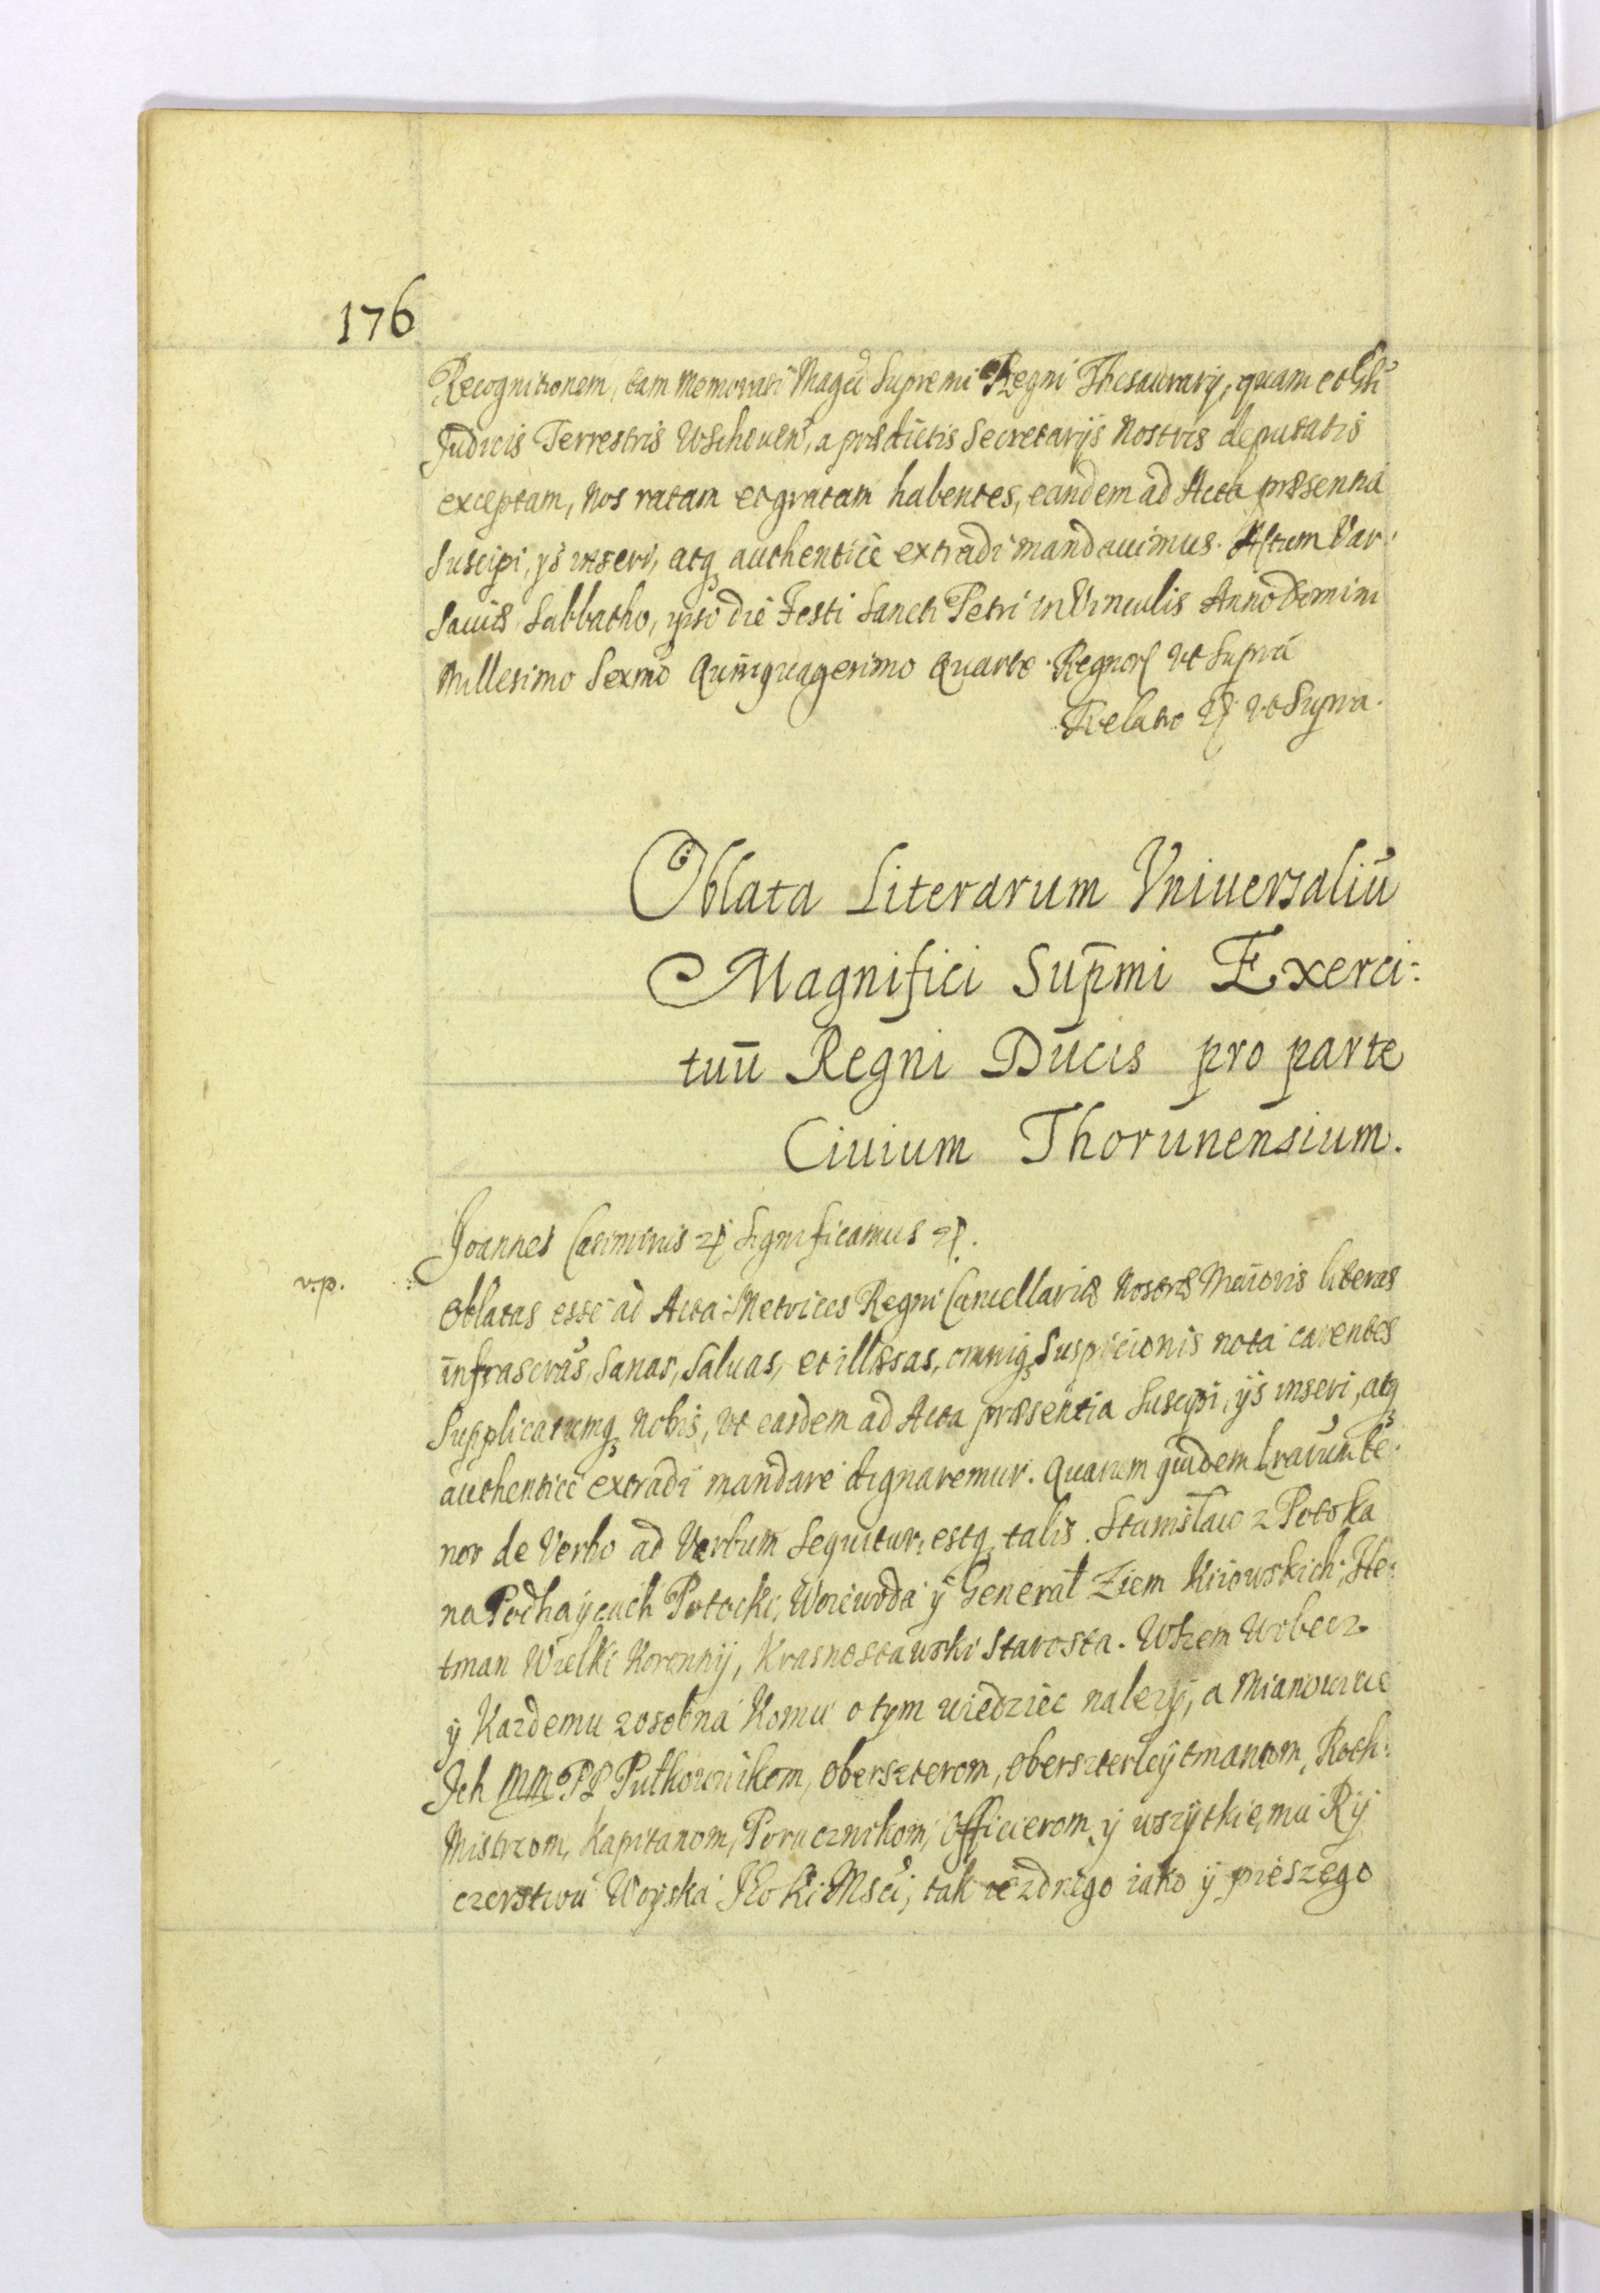 176
Recognitionem, tam memorati Magci Supremi Regni Thesaurarij, quam et
Judicis Terrestris Wschouen, a prædictis Secretarijs Nostris deputatis
exceptam, Nos ratam et gratam habentes, eandem ad Acta præsentia
Suscipi, ijs inseri, atq authenticè extradi mandauimus. Actum Var:
sauiæ Sabbatho, ipso die Festi Sancti Petri in Vinculis Anno Domini
Millesimo Sexmo Quinquagesimo Quarto. Regnor Ut Supra
Relatio Ut Supra.
Oblata Literarum Vniuersaliũ
Magnifici Supmi Exerci:
tuũ Regni Ducis pro parte
Ciuium Thorunensium.
Joannes Casimirus Significamus
Oblatas esse ad Acta Metrices Regni Cancellariæ Nostræ Maioris literas
infrascras, Sanas, Saluas, et illæsas, omniq Suspicionis nota carentes
Supplicatumq Nobis, Vt easdem ad Acta præsentia Suscipi, ijs inseri, atq
authenticè extradi mandare dignaremur. Quarum quidem Lrarum te:
nor de Verbo ad Verbum Sequitur, estq talis. Stanisław z Potoka
na Podhaycach Potocki, Woiewoda ÿ Generał Ziem Kiiowskich, He:
tman Wielki Koronnÿ, Krasnostawski Starosta. Wszem Wobec z
ÿ Kazdemu zosobna Komu o tym wiedziec nalezÿ, a Mianowicie
Ich MM PP Pułkownikom, Oberszterom, Oberszterleÿtmantom, Roth:
Mistrzom, Kapitanom, Porucznikom, Officierom ÿ wszÿtkiemu Rÿ
czerstwu Woÿska JKo Ki Msci, tak iezdnego iako ÿ pieszego